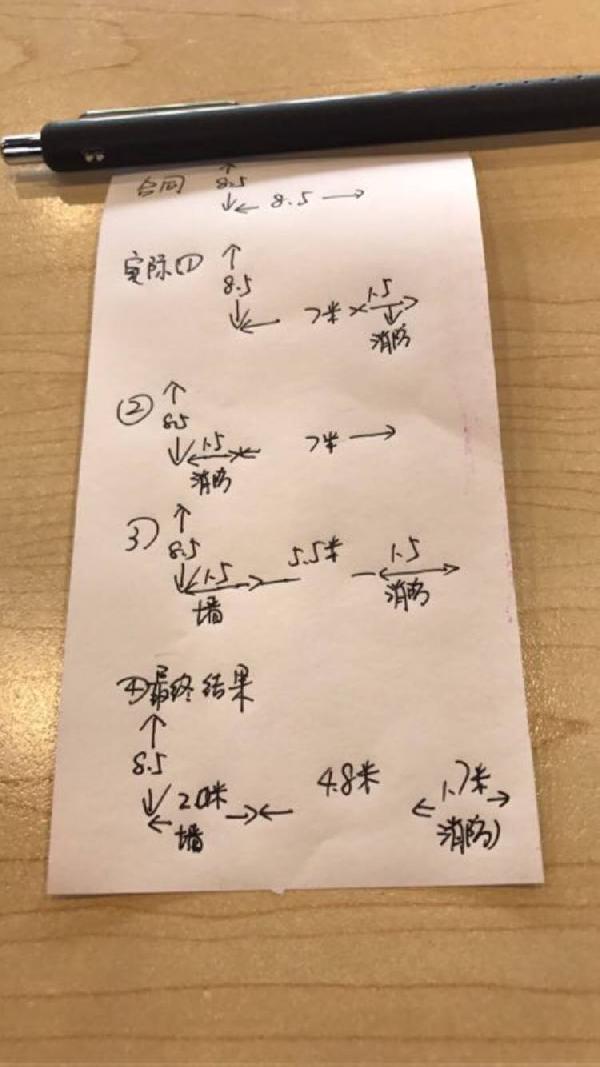 合同 8.5
8.5
实际① 8.5
7米 1.5
消防
② 8.5
1.5 7米
消防
③ 8.5
1.5 5.5米 1.5
墙 消防
④最终结果
8.5
2.0米 4.8米 1.7米
墙 消防